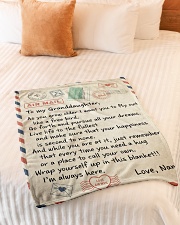 AIR MAIL
To my Granddaughter,
As you grow older I want you to fly out
like a free bird.
Go forth and pursue all your dreams.
Live life to the fullest
and make sure that your happiness
is second to none.
And while you are at it, just remember
that every time you need a hug
or a place to call your own.
Wrap yourself up in this blanket!!
I'm always here.
Love, Nan